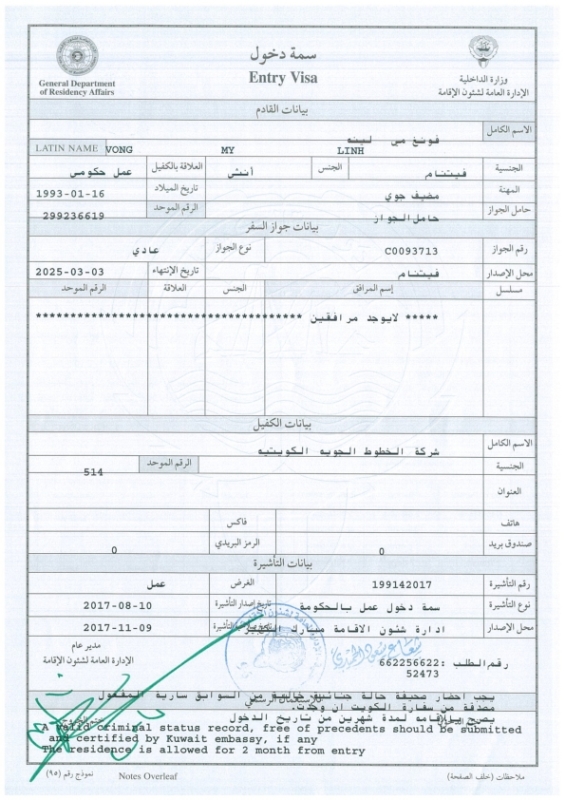 سمة دخول
Entry Visa
General Department
of Residency Affairs
وزارة الداخلية
الإدارة العامة لشئون الإقامة
بيانات القادم
الاسم الكامل فونغ مي لينه
LATIN NAME VONG MY LINH
الجنسية فيتنام الجنس أنثى العلاقة بالكفيل عمل حكومي
المهنة مضيف جوي تاريخ الميلاد 1993-01-16
حامل الجواز حامل الجواز الرقم الموحد 299236619
بيانات جواز السفر
رقم الجواز C0093713 نوع الجواز عادي
محل الإصدار فيتنام تاريخ الإنتهاء 2025-03-03
مسلسل إسم المرافق الجنس العلاقة الرقم الموحد
***** لايوجد مرافقين **************************************
بيانات الكفيل
الاسم الكامل شركة الخطوط الجويه الكويتيه
الجنسية الرقم الموحد 514
العنوان
هاتف فاكس
صندوق بريد 0 الرمز البريدي 0
بيانات التأشيرة
رقم التأشيرة 199142017 الغرض عمل
نوع التأشيرة سمة دخول عمل بالحكومة تاريخ إصدار التأشيرة 2017-08-10
محل الإصدار ادارة شئون الاقامة مبارك الكبير 2017-11-09
مدير عام
الإدارة العامة لشئون الإقامة
رقم الطلب: 662256622
52473
يجب احضار صحيفة حالة جنائية خالية من السوابق سارية المفعول
مصدقة من سفارة الكويت ان وجدت.
يصرح بالإقامه لمدة شهرين من تاريخ الدخول
A valid criminal status record, free of precedents should be submitted
and certified by Kuwait embassy, if any
The residence is allowed for 2 month from entry
نموذج رقم (٩٥) Notes Overleaf ملاحظات (خلف الصفحة)